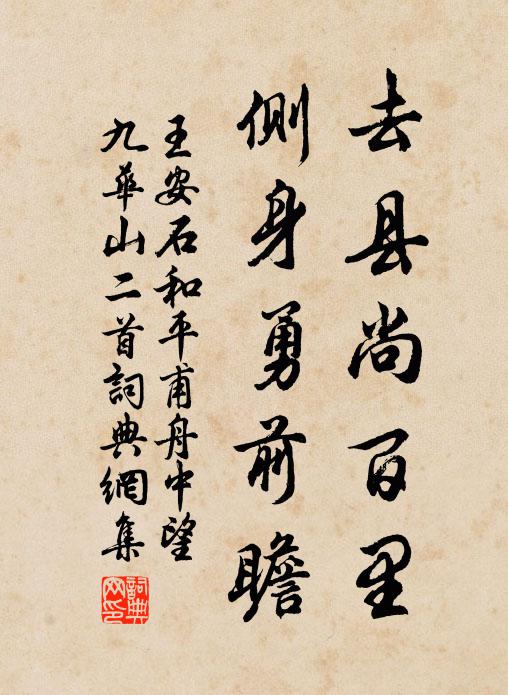 去县尚百里
侧身勇前瞻
王安石和平甫舟中望
九華山二首詞典網集
詞典
网印